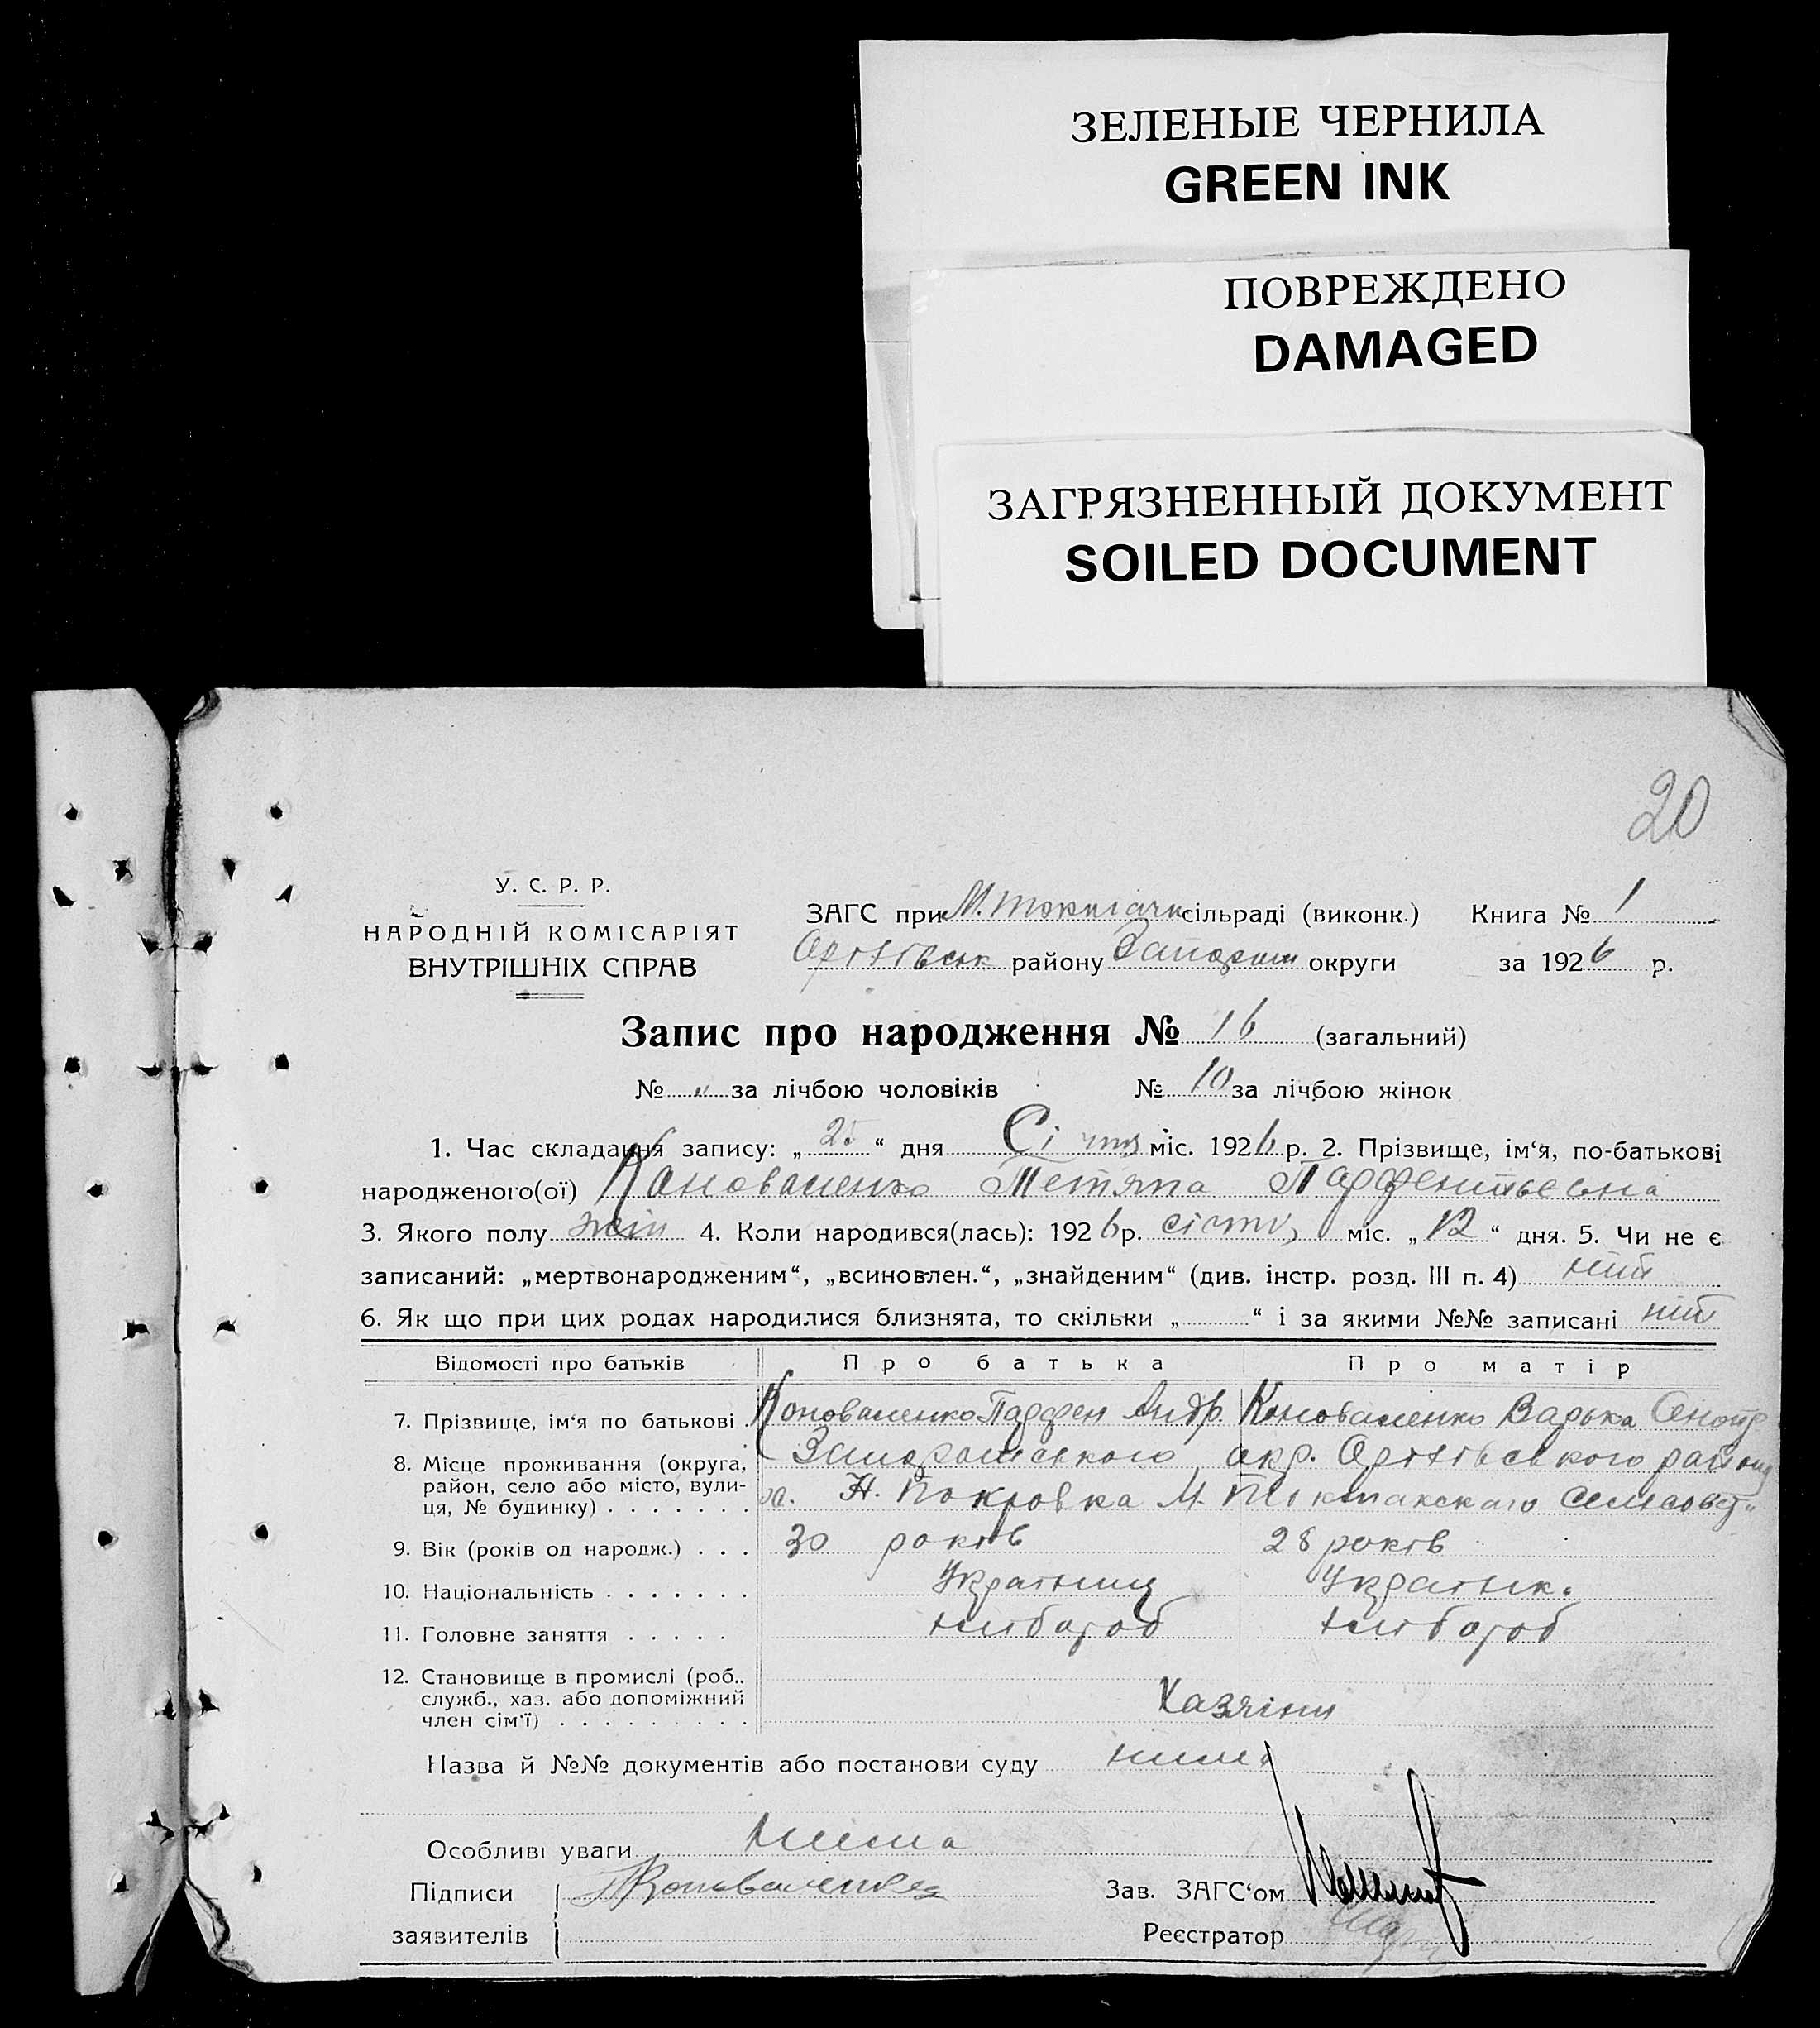 ЗЕЛЕНЫЕ ЧЕРНИЛА
GREEN INK
ПОВРЕЖДЕНО
DAMAGED
ЗАГРЯЗНЕННЫЙ ДОКУМЕНТ
SOILED DOCUMENT
20
У. С. Р. Р.
НАРОДНІЙ КОМІСАРІЯТ
ВНУТРІШНІХ СПРАВ
ЗАГС при М. Токмачк сільраді (виконк.) Книга № 1
Оріхівськ району Запоріж округи за 1926 р.
Запис про народження № 16 (загальний)
№ „ за лічбою чоловіків № 10 за лічбою жінок
1. Час складання запису: „ 25 “ дня Січня міс. 1926 р. 2. Прізвище, ім‘я, по-батькові
народженого(ої) Коноваленко Тетяна Парфентьевна
3. Якого полу жін 4. Коли народився(лась): 1926 р. січня міс. „ 12 “ дня. 5. Чи не є
записаний: „мертвонародженим“, „всиновлен.“, „знайденим“ (див. інстр. розд. III п. 4) нит
6. Як що при цих родах народилися близнята, то скільки „ “ і за якими №№ записані нит
Відомості про батьків Про батька Про матір
7. Прізвище, ім‘я по батькові Коноваленко Парфен Андр. Коноваленко Варька
8. Місце проживання (округа, район, село або місто, вулиця, № будинку) Запоражського окр. Оріхівського району
Н. Покровка М. Токмакскаго
9. Вік (років од народж.) 30 років 28 років
10. Національність Українец Українк.
11. Головне заняття хлібороб хлібороб
12. Становище в промислі (роб., служб., хаз. або допоміжний член сім‘ї) Хазяіни
Назва й №№ документів або постанови суду нима
Особливі уваги Нима
Підписи заявителів Коноваленко
Зав. ЗАГС‘ом
Реєстратор